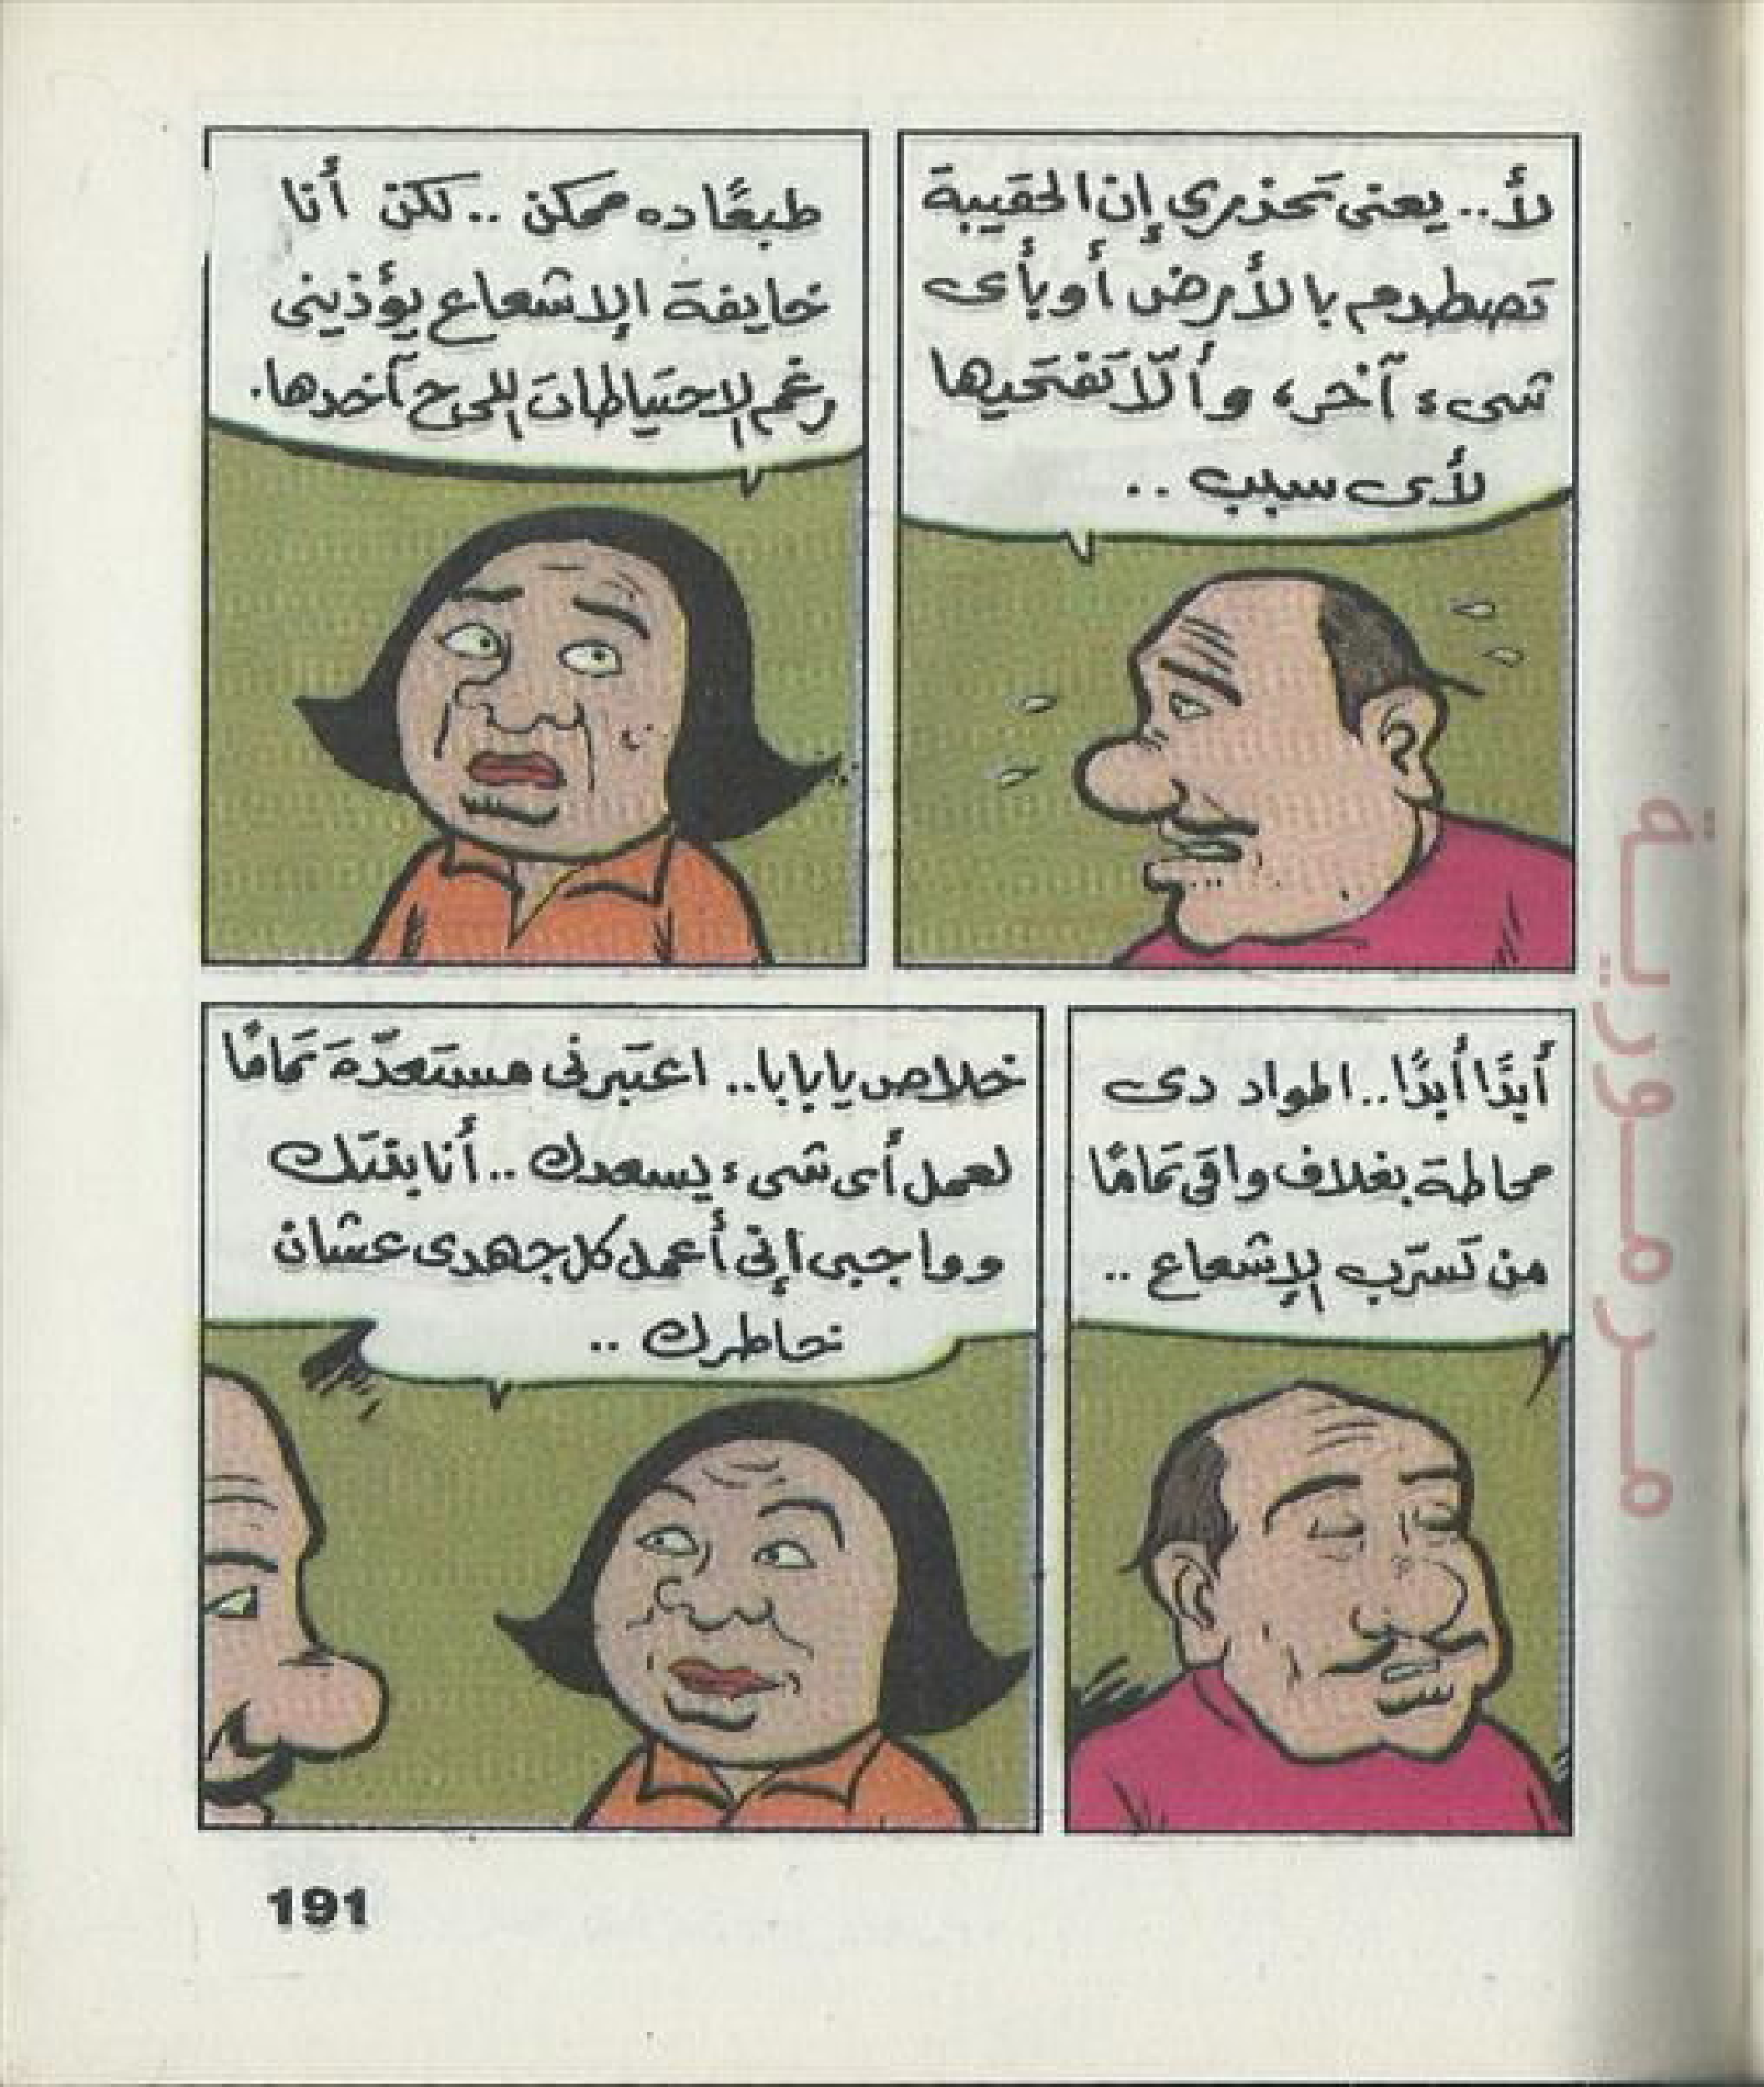 لأ.. يعنى تحذرى إن الحقيبة
تصطدم بالأرض أو بأى
شىء آخر، وألّا تفتحيها
لأى سبب ..
طبعًا ده ممكن .. لكن أنا
خايفة الإشعاع يؤذينى
رغم الاحتياطات اللى ح آخدها.
أبدًا أبدًا.. المواد دى
محاطة بغلاف واقى تمامًا
من تسرّب الإشعاع ..
خلاص يا بابا.. اعتبرنى مستعدّة تمامًا
لعمل أى شىء يسعدك .. أنا بنتك
وواجبى إنى أعمل كل جهدى عشان
خاطرك ..
191
مرمورية